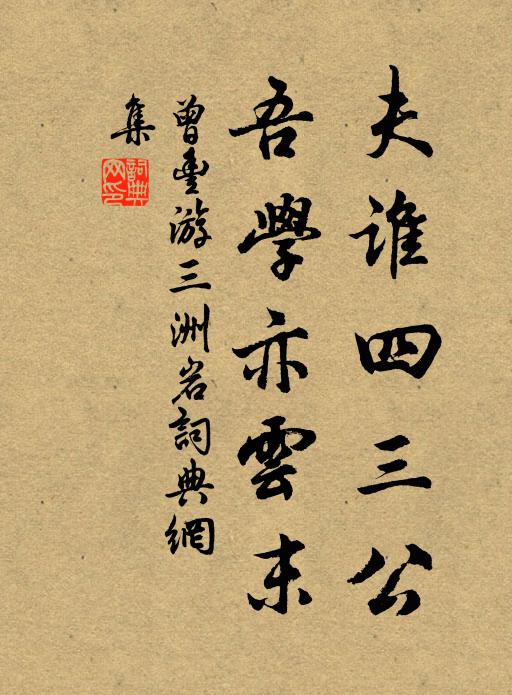 夫誰四三公
吾學亦雲末
曾豐游三洲岩詞典網
集
詞典网印